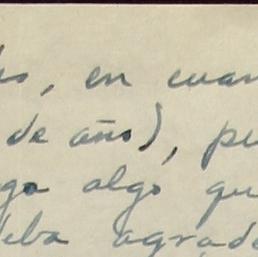 , en cuan
de año), pu
algo qu
deba agrade